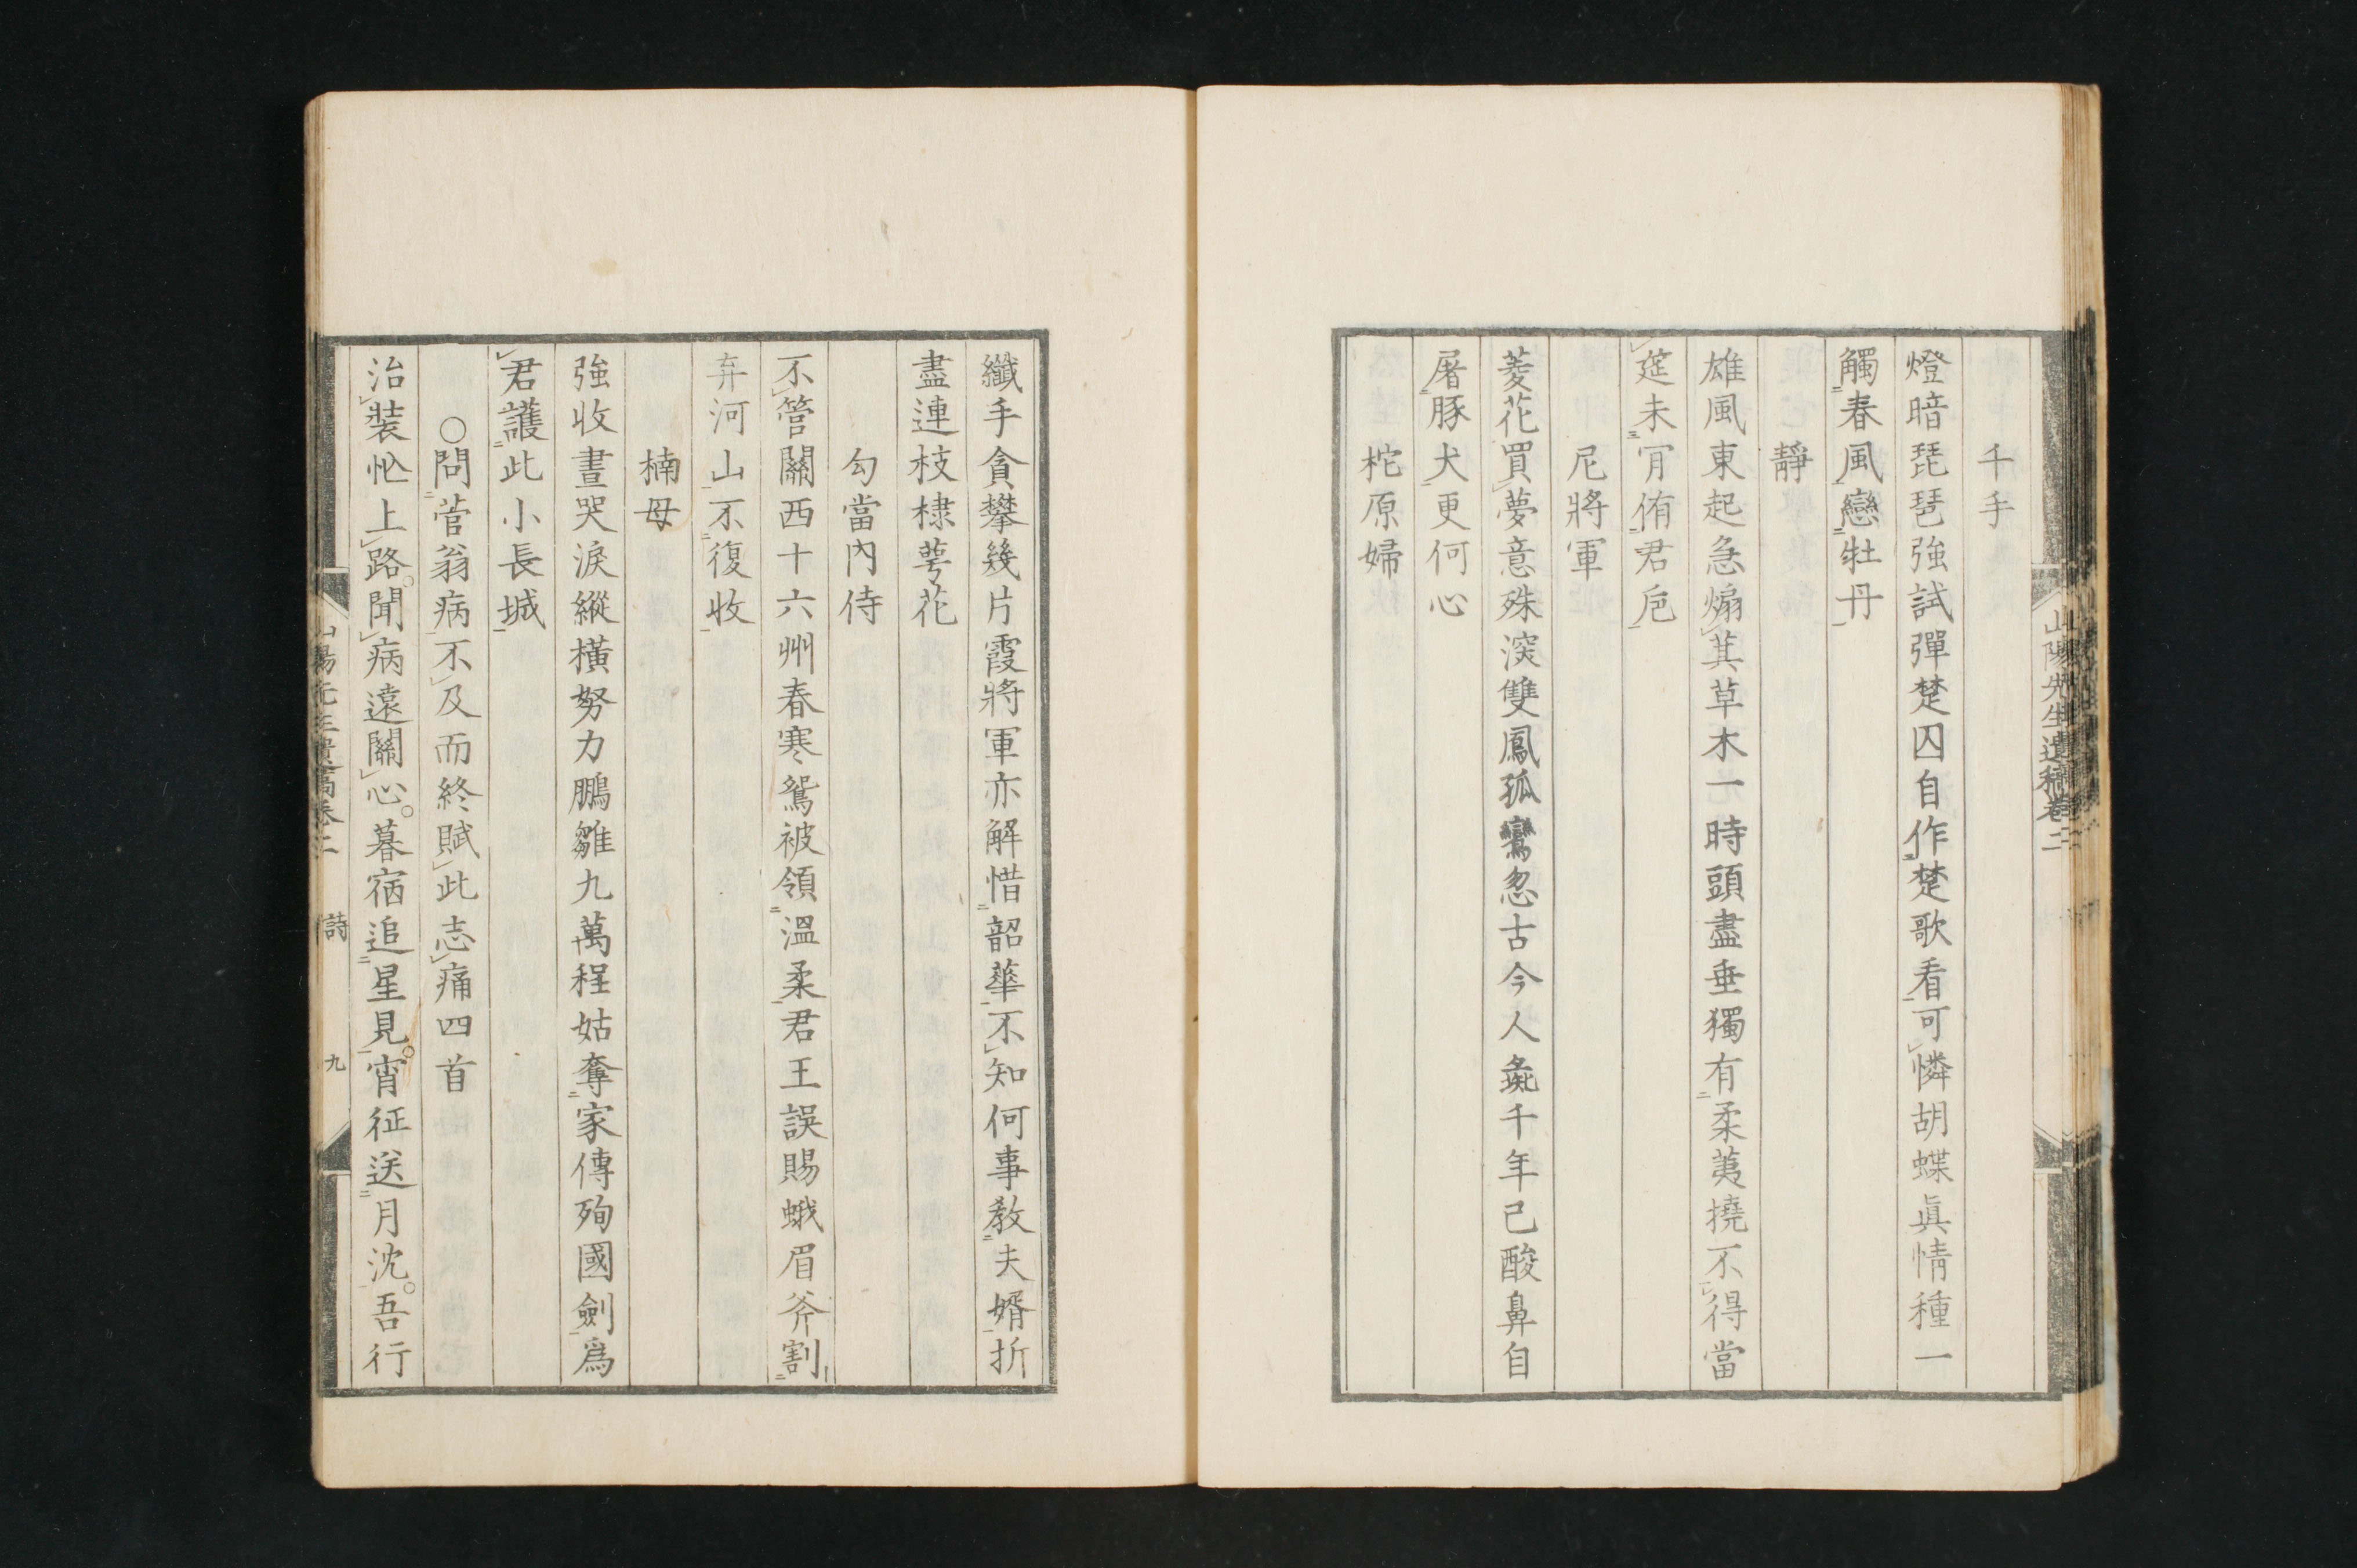 千手
燈暗琵琶強試彈楚囚自作楚歌看可憐胡蝶眞情種一
觸春風戀牡丹
靜
雄風東起急煽萁草木一時頭盡垂獨有柔荑撓不得當
筵未肎侑君巵
尼將軍
菱花買夢意殊深雙鳳孤鸞忽古今人彘千年已酸鼻自
屠豚犬更何心
柁原婦
山陽先生遺稿卷二
纖手貪攀幾片霞將軍亦解惜韶華不知何事教夫婿折
盡連枝棣萼花
勾當內侍
不管關西十六州春寒鴛被領溫柔君王誤賜蛾眉斧割
弃河山不復收
楠母
強收晝哭淚縱橫努力鵬雛九萬程姑奪家傳殉國劍爲
君護此小長城
○問菅翁病不及而終賦此志痛四首
治裝忙上路聞病遠關心暮宿追星見宵征送月沈吾行
山陽先生遺稿卷二 詩 九